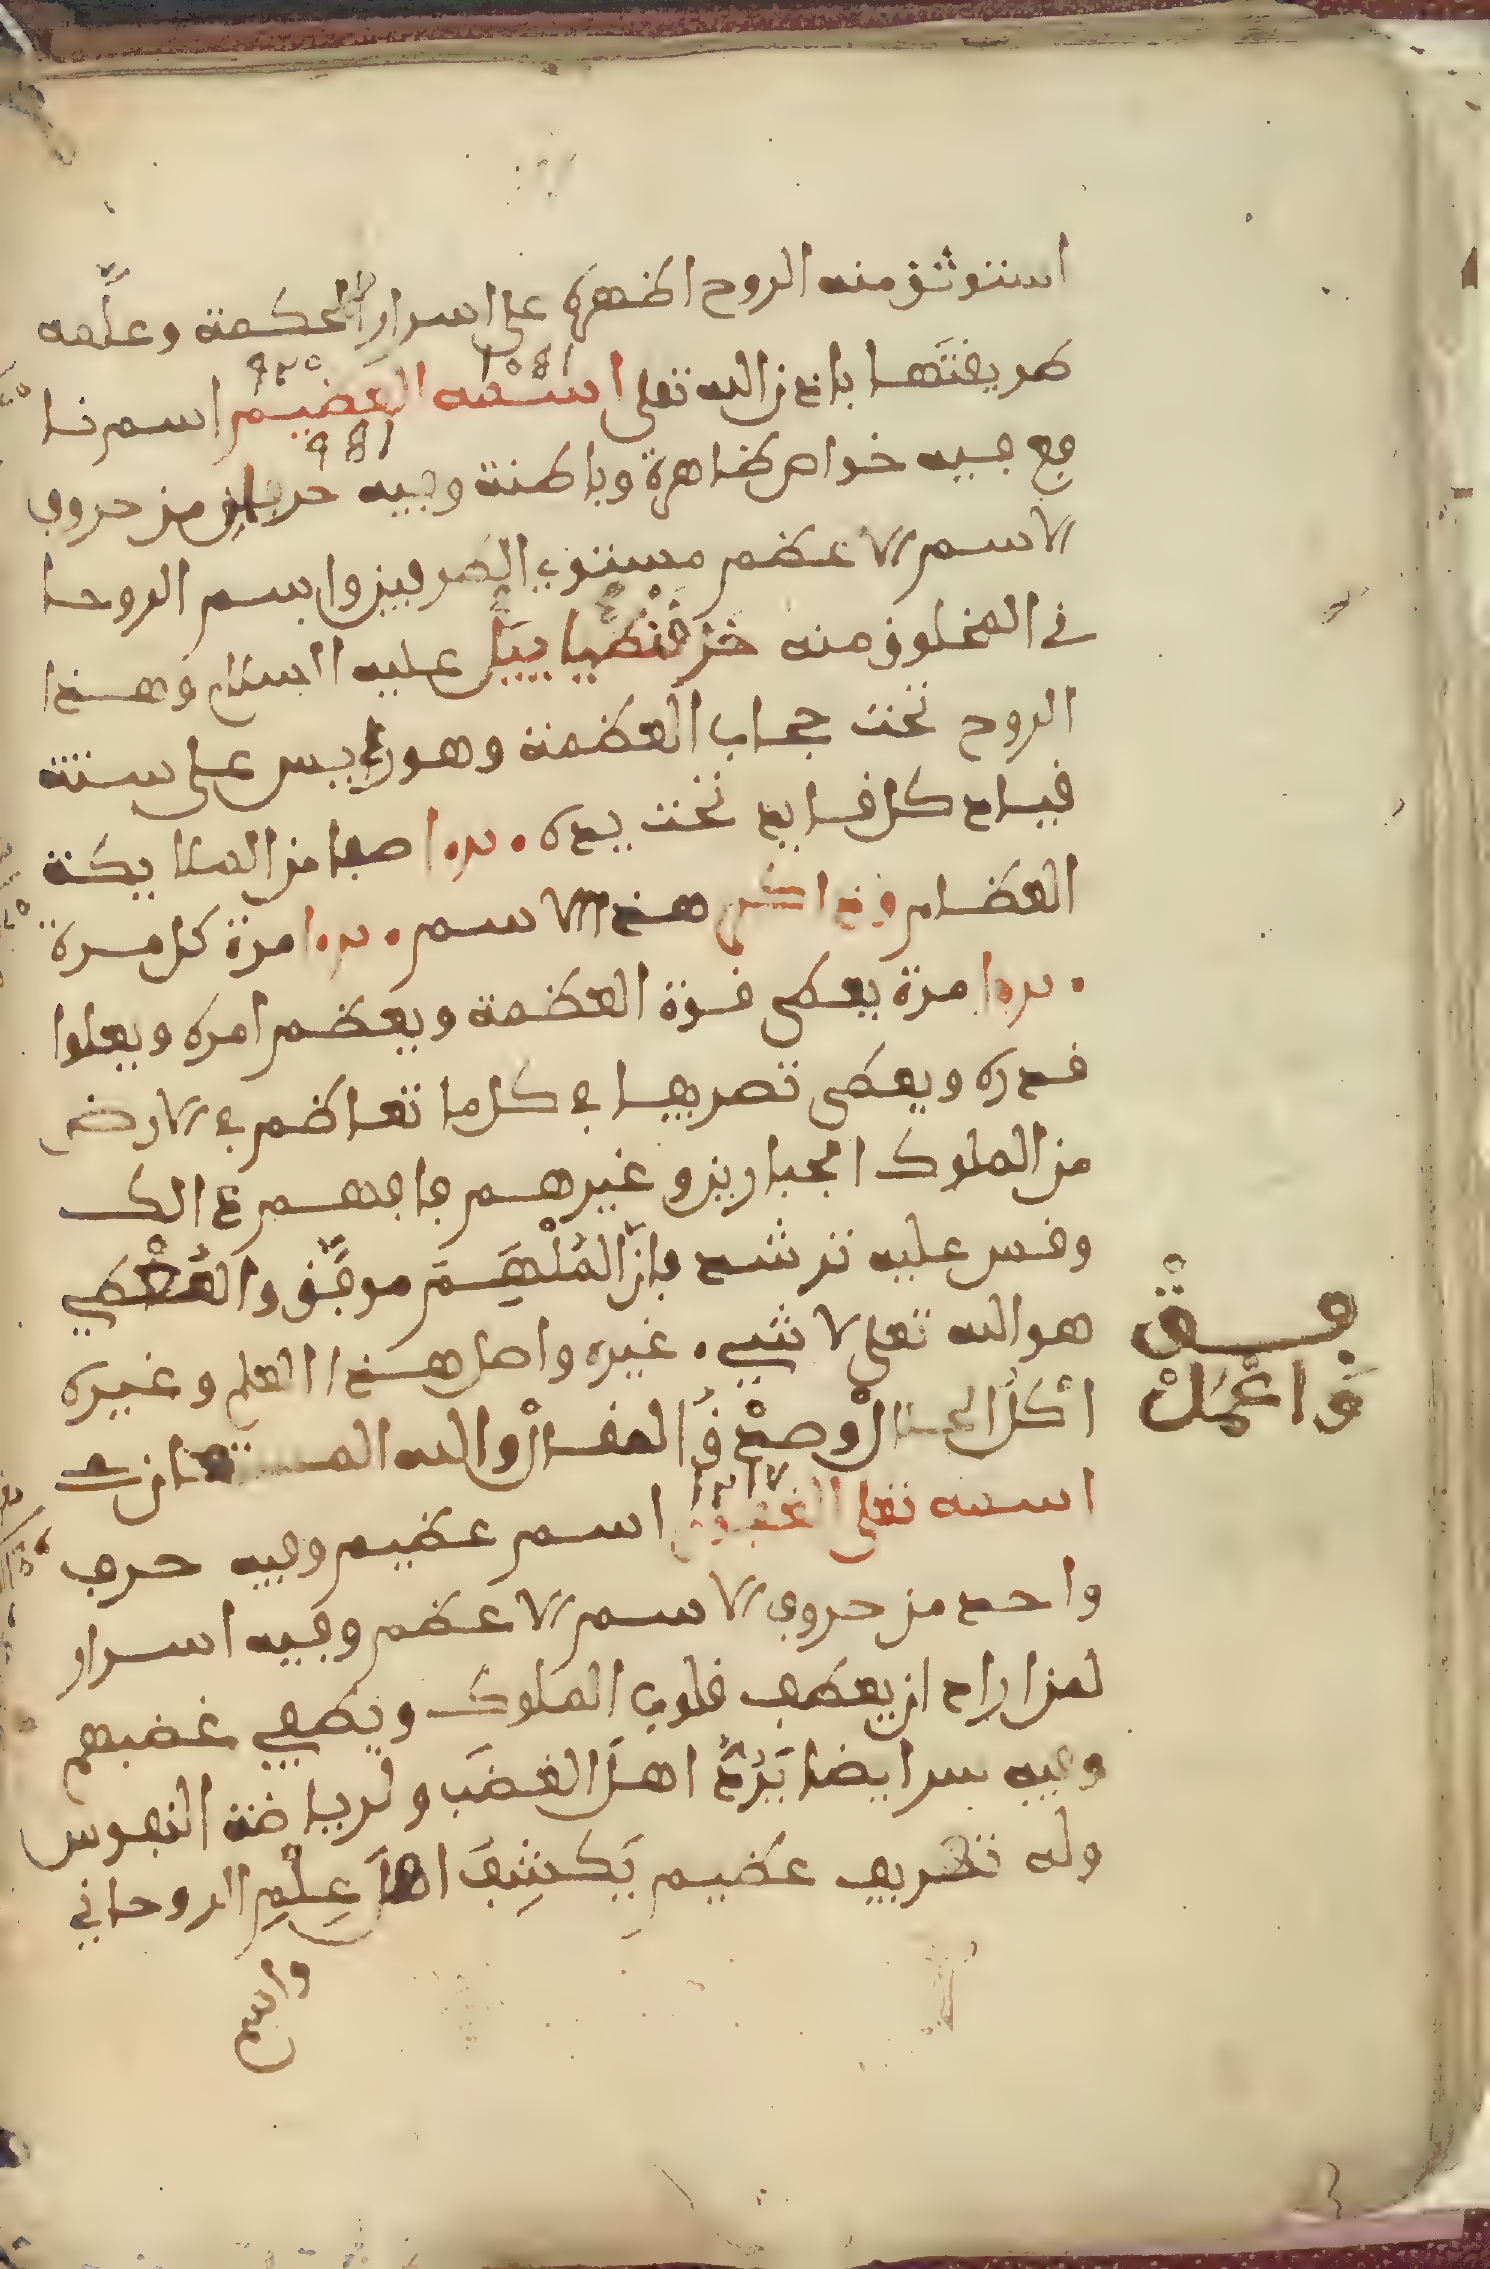 استوثق منه الروح اظهره على اسرار الحكمة وعلّمه
طريقتها باذن الله تعلى اسمه العظيم اسم نا
فع فيه خواص ظاهرة وباطنة وفيه حرفان من حروف
الاسم الاعظم مستوي الطرفين واسم الروحا
ني المخلوق منه عليه السلام وهذا
الروح تحت حجاب العظمة وهو رئيس على ستة
قياد كل قايد تحت يده صفا من الملايكة
العظام وذاكر هذا الاسم مرة كل مرة
مرة يعطى قوة العظمة ويعظم امره ويعلوا
قدره ويعطى تصريفا في كل ما تعاظم في الارض
من الملوك الجبارين وغيرهم فافهم ذالك
وقس عليه ترشد فانّ المُلْهَمَ موفّق والمُعْطي
هو الله تعلى لا شيء غيره واصل هذا العلم وغيره
اكل الحلال وصدق المقال والله المستعان
اسمه تعلى اسم عظيم وفيه حرف
واحد من حروف الاسم الاعظم وفيه اسرار
لمن اراد ان يعطف قلوب الملوك ويطفي غضبهم
وفيه سر ايضا اهل الغضب ولرياضة النفوس
وله تصريف عظيم يكشف اهل علم الروحاني
فــق
واعْمَلْ